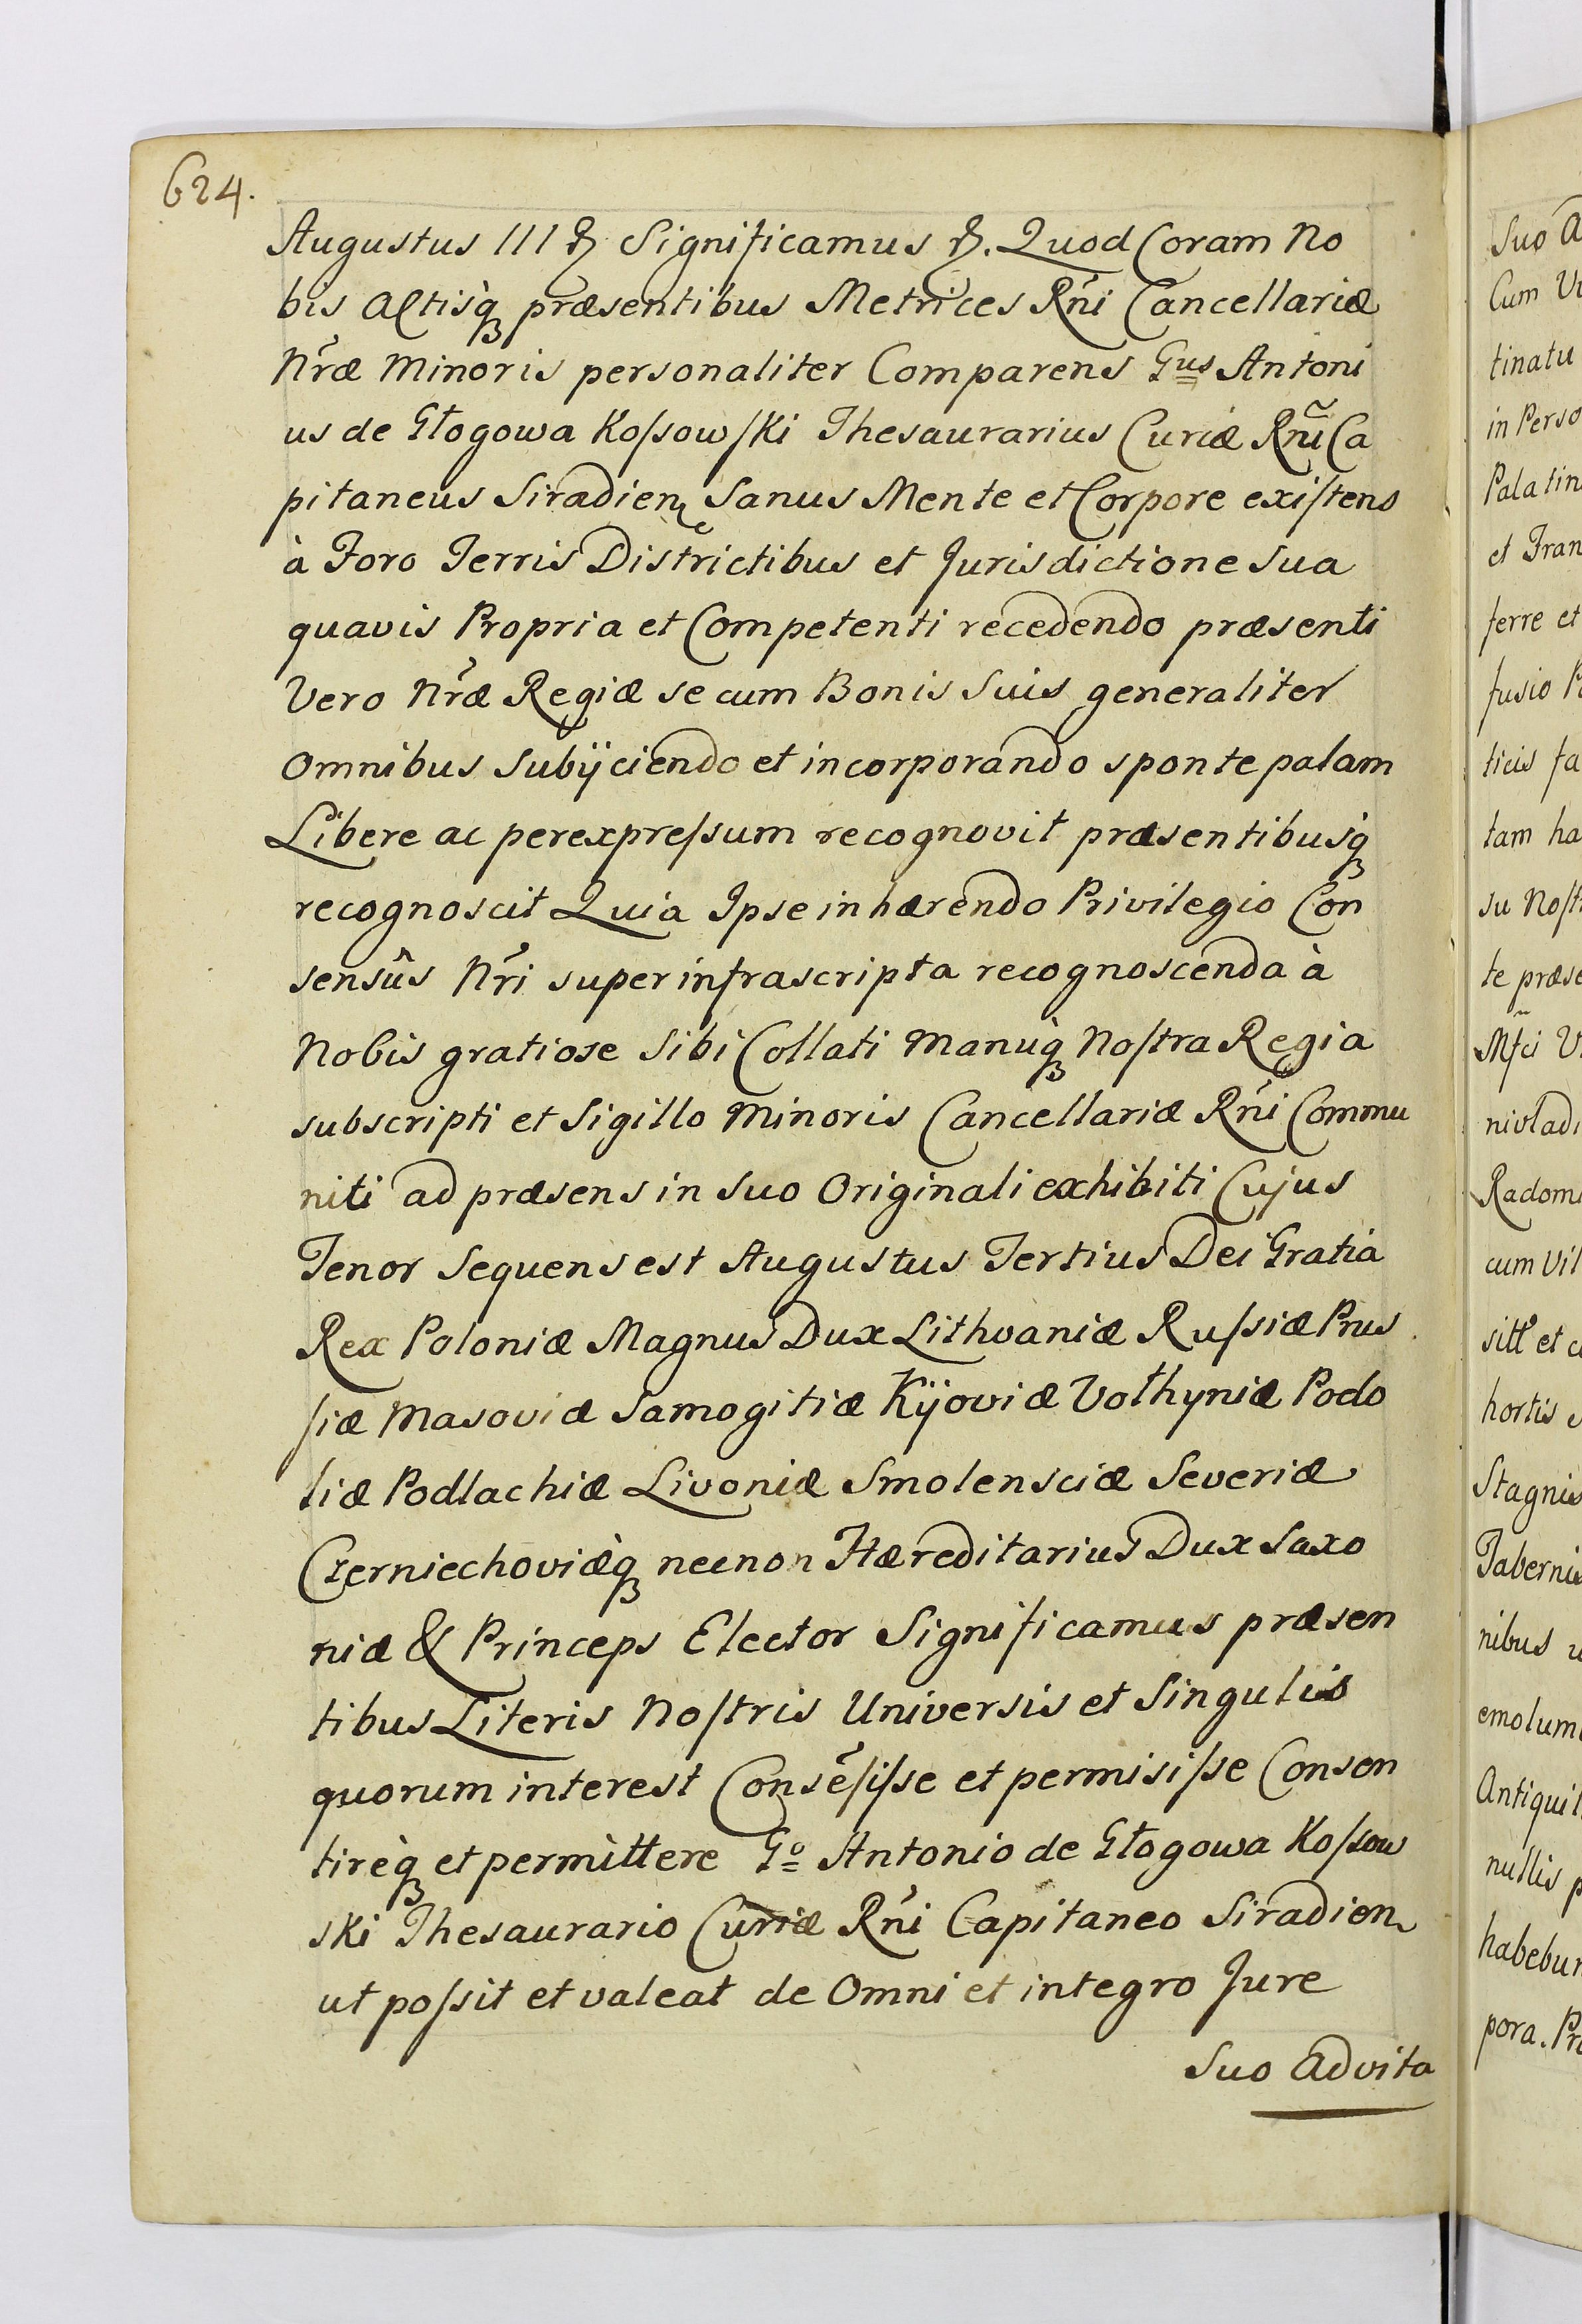 624.
Augustus III & Significamus &. Quod Coram No
bis Actisq̀ præsentibus Metrices Rńi Cancellariæ
Nr̃æ Minoris personaliter Comparens Gus Antoni
us de Głogowa Koſsowſki Thesaurarius Curiæ Rñi Ca
pitaneus Siradien Sanus Mente et Corpore exiſtens
à Foro Terris Districtibus et Jurisdictione Sua
quavis Propria et Competenti recedendo præsenti
Vero Nr̃æ Regiæ se cum Bonis Suis generaliter
Omnibus Subijciendo et incorporando sponte palam
Libere ac per expreſsum recognovit præsentibusq̀
recognoscit Quia Ipse inhærendo Privilegio Con
sensûs Nŕi super infrascripta recognoscenda à
Nobis gratiose Sibi Collati Manuq̀ Noſtra Regia
subscripti et Sigillo Minoris Cancellariæ Rńi Commu
niti ad præsens in Suo Originali exhibiti Cujus
Tenor Sequens est Augustus Tertius Dei Gratia
Rex Poloniæ Magnus Dux Lithvaniæ Ruſsiæ Prus
ſiæ Masoviæ Samogitiæ Kijoviæ Vołhyniæ Podo
liæ Podlachiæ Livoniæ Smolensciæ Severiæ
Czerniechoviæq̀ necnon Hæreditarius Dux Saxo
niæ & Princeps Elector Significamus præsen
tibus Literis Noſtris Universis et Singulis
quorum interest Consẽſiſse et permisiſse Consen
tireq̀ et permìttere Go Antonio de Głogowa Koſsow
ski Thesaurario Curiæ Rńi Capitaneo Siradien
ut poſsit et valeat de Omni et integro Jure
Suo Advita
Suo
Cum
tinatu
in Perso
Palatin
et Fran
ferre et
fusio
ticis fa
tam ha
su Noſt
te præse
Mſci
Radom
cum Vil
et
hortis
Stagnis
Tabernis
nibus
emolum
Antiquit
nullis
habebun
pora.